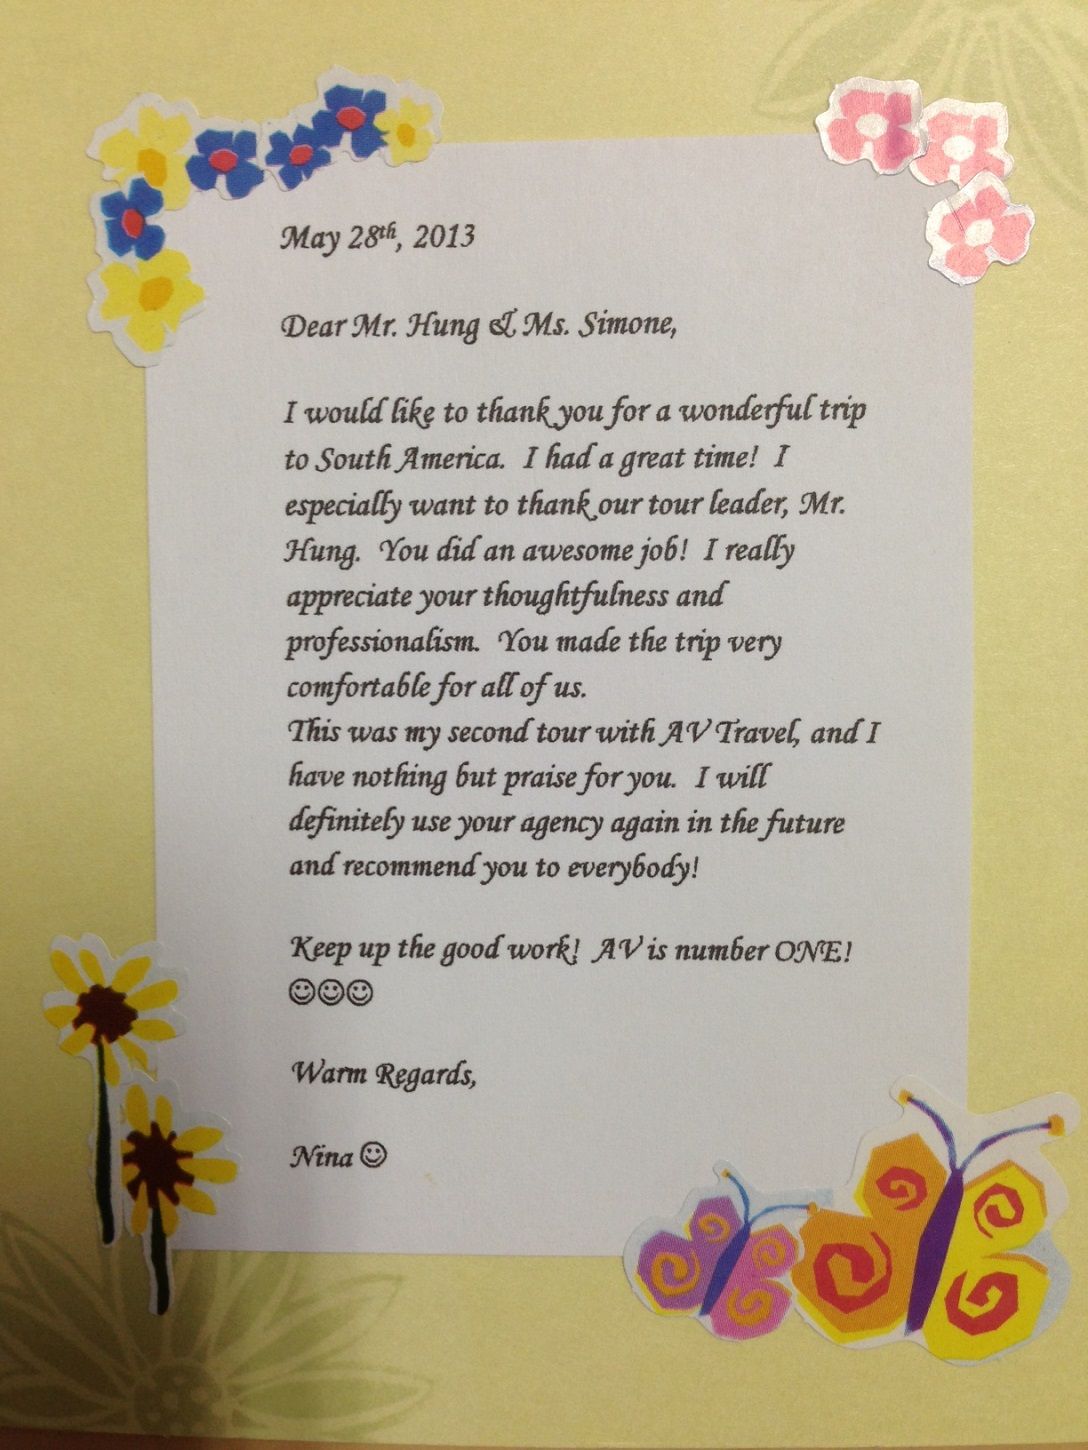 May 28th, 2013
Dear Mr. Hung & Ms. Simone,
I would like to thank you for a wonderful trip
to South America.  I had a great time!  I
especially want to thank our tour leader, Mr.
Hung.  You did an awesome job!  I really
appreciate your thoughtfulness and
professionalism.  You made the trip very
comfortable for all of us.
This was my second tour with AV Travel, and I
have nothing but praise for you.  I will
definitely use your agency again in the future
and recommend you to everybody!
Keep up the good work!  AV is number ONE!
☺☺☺
Warm Regards,
Nina ☺